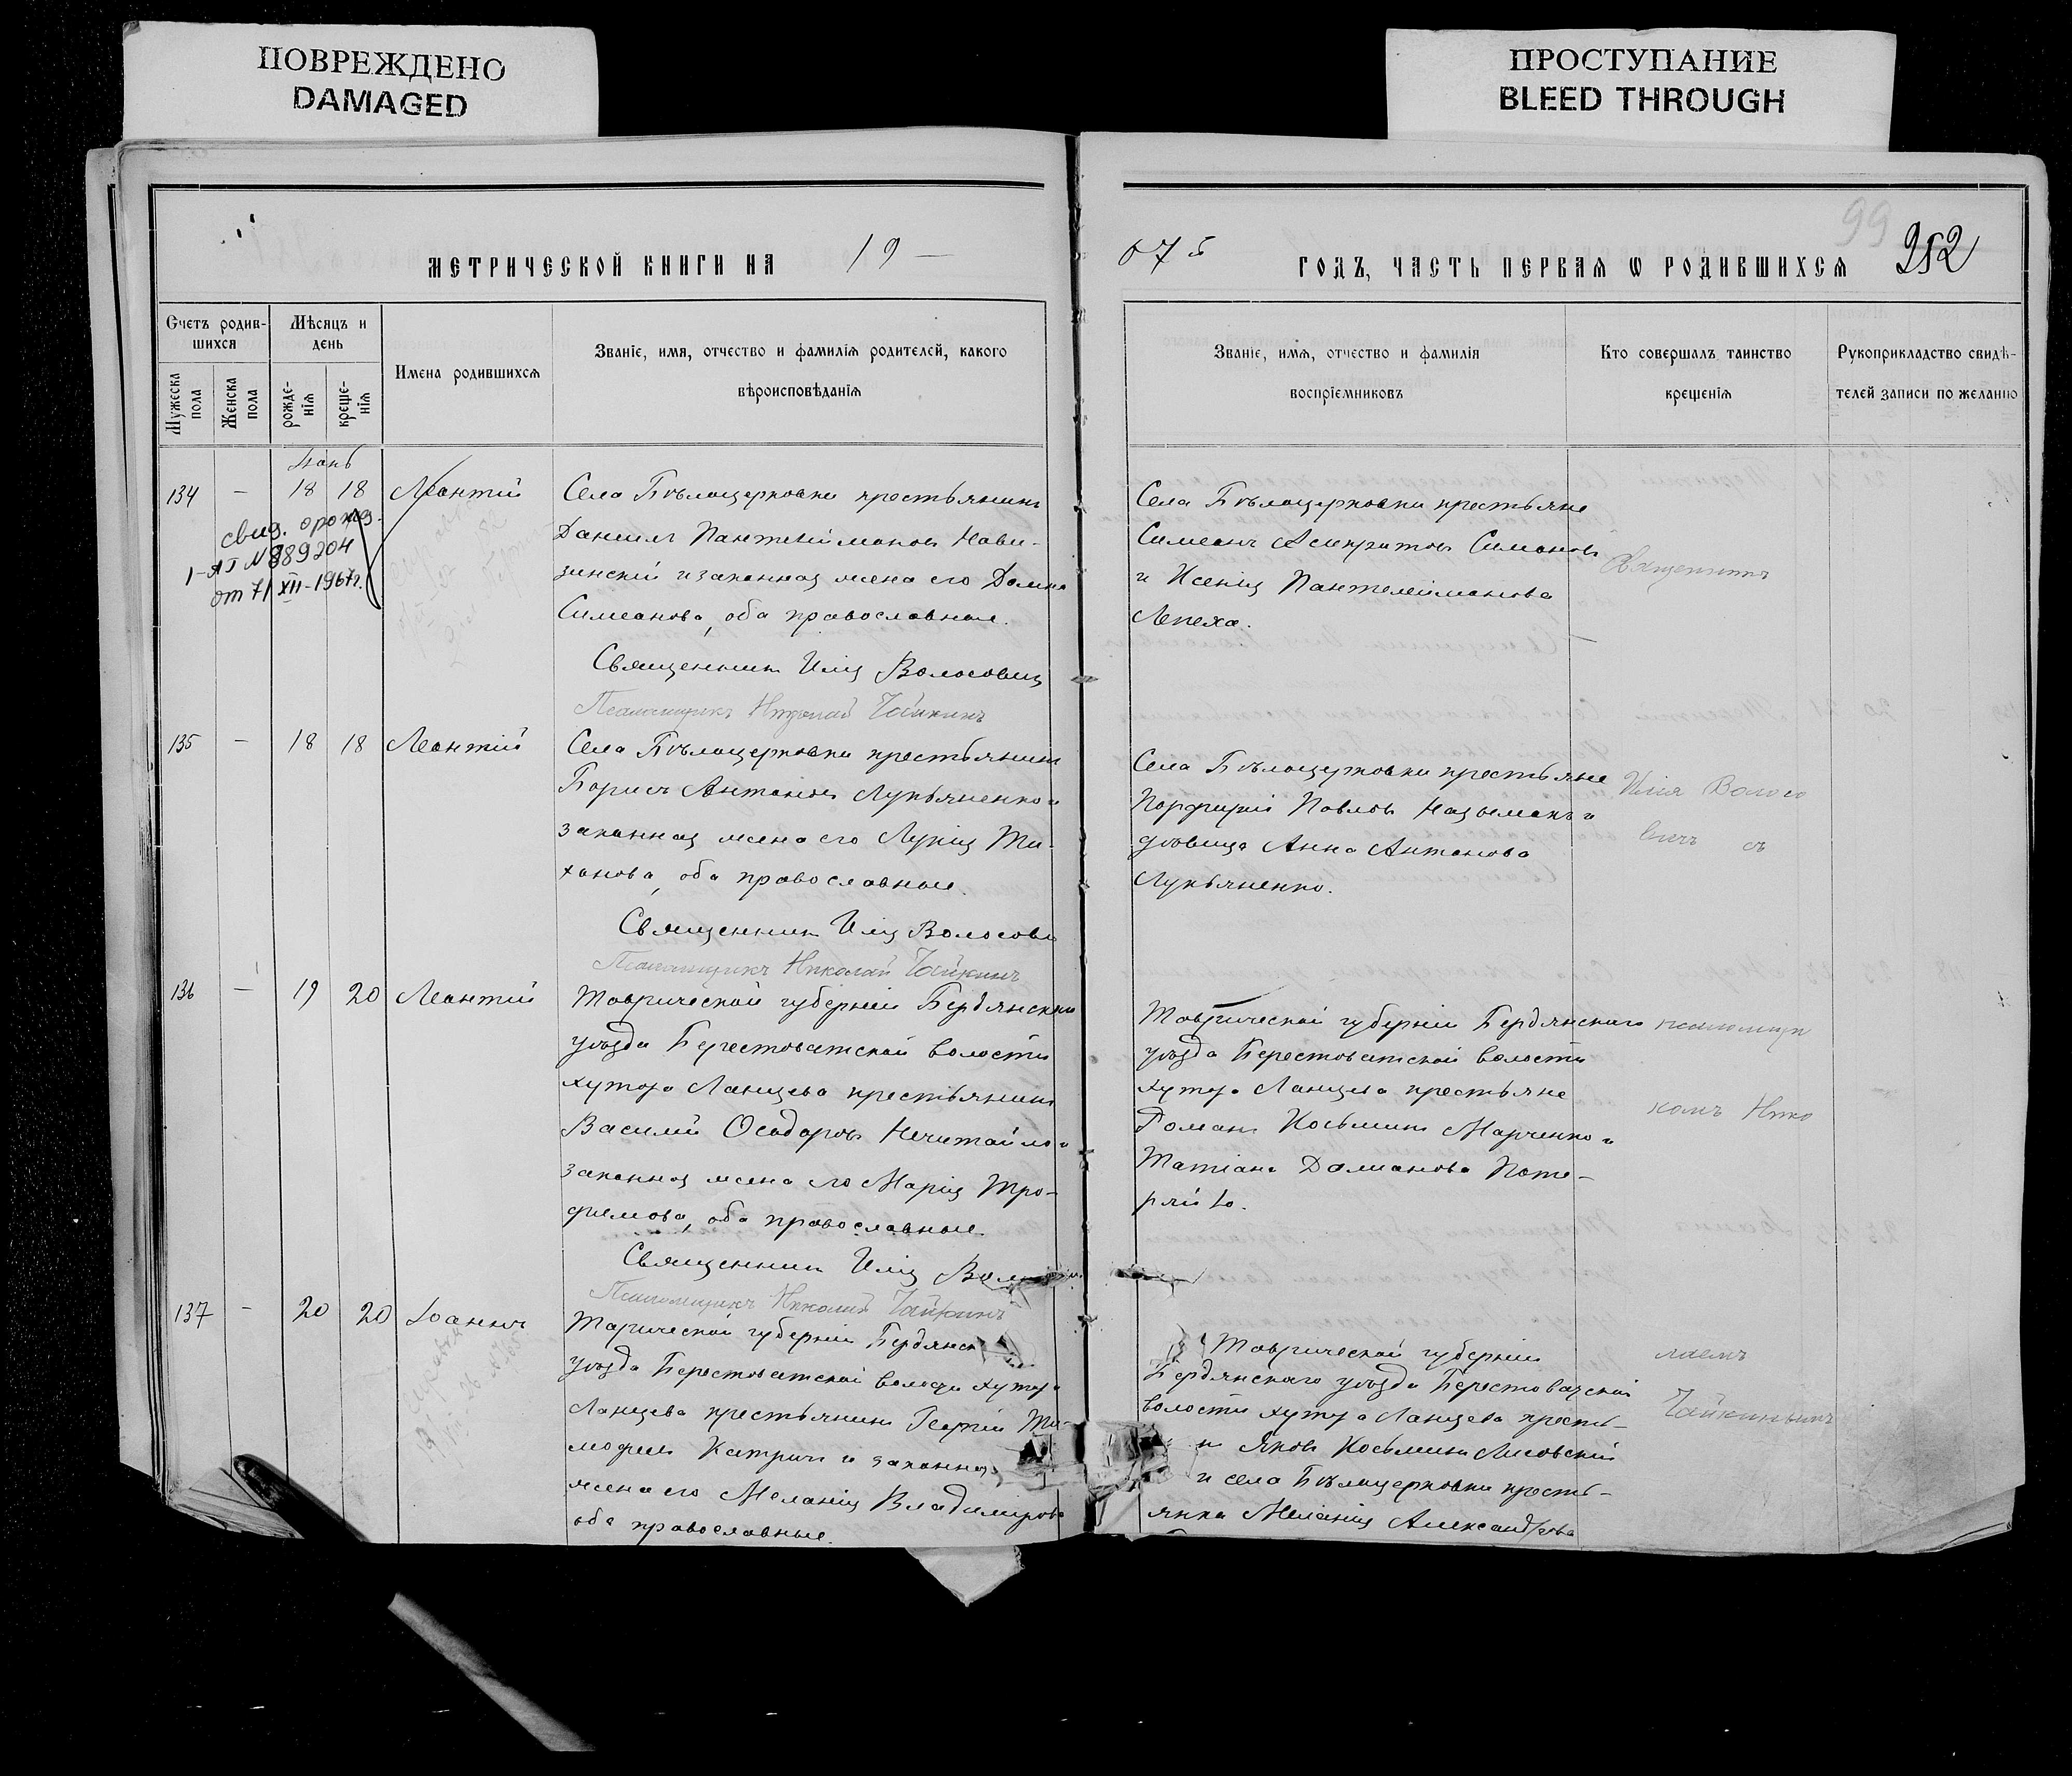 ПОВРЕЖДЕНО
DAMAGED
ПРОСТУПАНИЕ
BLEED THROUGH
МЕТРИЧЕСКОЙ КНИГИ НА 19
Счетъ родив-
шихся
Мѣсяцъ и
день
Мужеска
пола
Женска
пола
рожде-
нія
креще-
нія
Имена родившихся
Званіе, имя, отчество и фамилія родителей, какого
вѣроисповѣданія
Іюнь
134 — 18 18 Леонтій
свид. о рожд.
I-АП № 889204
от 7/XII-1967г.
Села Бѣлоцерковки крестьянинъ
Даниилъ Пантелѣимоновъ Нови-
зинскій и законная жена его Домна
Симеонова, оба православные.
Священникъ Илія Волосович
Псаломщикъ Николай Чайкинъ
135 — 18 18 Леонтій
Села Бѣлоцерковки крестьянинъ
Борисъ Антоновъ Лукьяненко и
законная жена его Лукія Ти-
хонова, оба православные.
Священникъ Илія Волосови
Псаломщикъ Николай Чайкинъ
136 — 19 20 Леонтій
Таврической губерніи Бердянскаго
уѣзда Берестоватской волости
хутора Ланцева крестьянинъ
Василій Ѳедоровъ Нечитайло и
законная жена его Марія Тро-
фимова, оба православные.
Священникъ Илія
Псаломщикъ Николай Чайкинъ
137 — 20 20 Іоаннъ
Таврической губерніи Бердянск
уѣзда Берестоватской волости хутора
Ланцева крестьянинъ Георгій Ти-
мофеевъ Катричъ и законная
жена его Меланія Владимірова
оба православные.
07й ГОДЪ, ЧАСТЬ ПЕРВАЯ Ѡ РОДИВШИХСЯ
99
252
Званіе, имя, отчество и фамилія
воспріемниковъ
Кто совершалъ таинство
крещенія
Рукоприкладство свидѣ-
телей записи по желанію
Села Бѣлоцерковки крестьяне
Симеонъ Асинкритовъ Симоновъ
и Ксенія Пантелеимонова
Лепеха.
Священникъ
Села Бѣлоцерковки крестьяне
Порфирій Павловъ и
дѣвица Анна Антонова
Лукьяненко.
Илія Волосо
вичъ съ
Таврической губерніи Бердянскаго
уѣзда Берестоватской волости
хутора Ланцева крестьяне
Романъ Косьминъ Марченко и
Татіана Даміанова Поте-
псаломщи
комъ Нико
Таврической губерніи
Бердянскаго уѣзда Берестоватской
волости хутора Ланцева кресть-
нъ Яковъ Косьминъ Лисовскій
и села Бѣлоцерковки кресть-
янка Меланія Александрова
лаемъ
Чайкинымъ